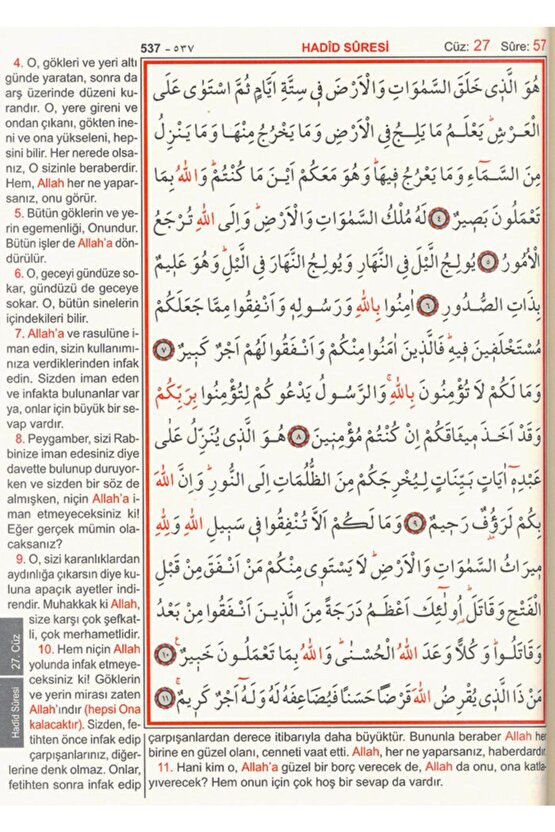 537 - ٥٣٧
HADÎD SÛRESİ
Cüz: 27 Sûre: 57
4. O, gökleri ve yeri altı
günde yaratan, sonra da
arş üzerinde düzeni ku-
randır. O, yere gireni ve
ondan çıkanı, gökten ine-
ni ve ona yükseleni, hep-
sini bilir. Her nerede olsa-
nız, O sizinle beraberdir.
Hem, Allah her ne yapar-
sanız, onu görür.
5. Bütün göklerin ve ye-
rin egemenliği, Onundur.
Bütün işler de Allah'a dön-
dürülür.
6. O, geceyi gündüze so-
kar, gündüzü de geceye
sokar. O, bütün sinelerin
içindekileri bilir.
7. Allah'a ve rasulüne i-
man edin, sizin kullanımı-
nıza verdiklerinden infak
edin. Sizden iman eden
ve infakta bulunanlar var
ya, onlar için büyük bir se-
vap vardır.
8. Peygamber, sizi Rab-
binize iman edesiniz diye
davette bulunup duruyor-
ken ve sizden bir söz de
almışken, niçin Allah'a i-
man etmeyeceksiniz ki!
Eğer gerçek mümin ola-
caksanız?
9. O, sizi karanlıklardan
aydınlığa çıkarsın diye ku-
luna apaçık ayetler indi-
rendir. Muhakkak ki Allah,
size karşı çok şefkat-
li, çok merhametlidir.
10. Hem niçin Allah
yolunda infak etmeye-
ceksiniz ki! Göklerin
ve yerin mirası zaten
Allah'ındır (hepsi Ona
kalacaktır). Sizden, fe-
tihten önce infak edip
çarpışanlarınız, diğer-
lerine denk olmaz. Onlar,
fetihten sonra infak edip
27. Cüz
Hadîd Sûresi
هُوَ الَّذٖى خَلَقَ السَّمٰوَاتِ وَالْاَرْضَ فٖى سِتَّةِ اَيَّامٍ ثُمَّ اسْتَوٰى عَلَى
الْعَرْشِ يَعْلَمُ مَا يَلِجُ فِى الْاَرْضِ وَمَا يَخْرُجُ مِنْهَا وَمَا يَنْزِلُ
مِنَ السَّمَٓاءِ وَمَا يَعْرُجُ فٖيهَا وَهُوَ مَعَكُمْ اَيْنَ مَا كُنْتُمْ وَاللّٰهُ بِمَا
تَعْمَلُونَ بَصٖيرٌ ﴿٤﴾ لَهُ مُلْكُ السَّمٰوَاتِ وَالْاَرْضِ وَاِلَى اللّٰهِ تُرْجَعُ
الْاُمُورُ ﴿٥﴾ يُولِجُ الَّيْلَ فِى النَّهَارِ وَيُولِجُ النَّهَارَ فِى الَّيْلِ وَهُوَ عَلٖيمٌ
بِذَاتِ الصُّدُورِ ﴿٦﴾ اٰمِنُوا بِاللّٰهِ وَرَسُولِهٖ وَاَنْفِقُوا مِمَّا جَعَلَكُمْ
مُسْتَخْلَفٖينَ فٖيهِ فَالَّذٖينَ اٰمَنُوا مِنْكُمْ وَاَنْفَقُوا لَهُمْ اَجْرٌ كَبٖيرٌ ﴿٧﴾
وَمَا لَكُمْ لَا تُؤْمِنُونَ بِاللّٰهِ وَالرَّسُولُ يَدْعُوكُمْ لِتُؤْمِنُوا بِرَبِّكُمْ
وَقَدْ اَخَذَ مٖيثَاقَكُمْ اِنْ كُنْتُمْ مُؤْمِنٖينَ ﴿٨﴾ هُوَ الَّذٖى يُنَزِّلُ عَلٰى
عَبْدِهٖٓ اٰيَاتٍ بَيِّنَاتٍ لِيُخْرِجَكُمْ مِنَ الظُّلُمَاتِ اِلَى النُّورِ وَاِنَّ اللّٰهَ
بِكُمْ لَرَؤُفٌ رَحٖيمٌ ﴿٩﴾ وَمَا لَكُمْ اَلَّا تُنْفِقُوا فٖى سَبٖيلِ اللّٰهِ وَلِلّٰهِ
مٖيرَاثُ السَّمٰوَاتِ وَالْاَرْضِ لَا يَسْتَوٖى مِنْكُمْ مَنْ اَنْفَقَ مِنْ قَبْلِ
الْفَتْحِ وَقَاتَلَ اُولٰٓئِكَ اَعْظَمُ دَرَجَةً مِنَ الَّذٖينَ اَنْفَقُوا مِنْ بَعْدُ
وَقَاتَلُوا وَكُلًّا وَعَدَ اللّٰهُ الْحُسْنٰى وَاللّٰهُ بِمَا تَعْمَلُونَ خَبٖيرٌ ﴿١٠﴾
مَنْ ذَا الَّذٖى يُقْرِضُ اللّٰهَ قَرْضًا حَسَنًا فَيُضَاعِفَهُ لَهُ وَلَهُٓ اَجْرٌ كَرٖيمٌ ﴿١١﴾
çarpışanlardan derece itibarıyla daha büyüktür. Bununla beraber Allah her
birine en güzel olanı, cenneti vaat etti. Allah, her ne yaparsanız, haberdardır
11. Hani kim o, Allah'a güzel bir borç verecek de, Allah da onu, ona katla-
yıverecek? Hem onun için çok hoş bir sevap da vardır.